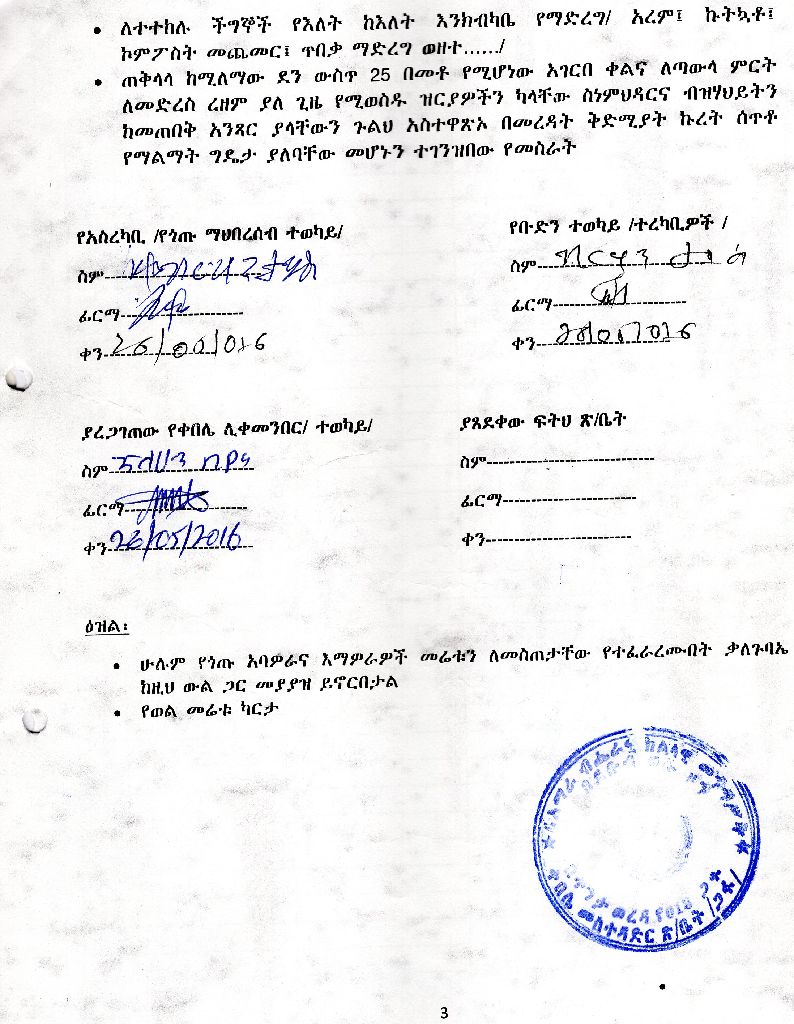 • ለተተከሉ ችግኞች የእለት ከእለት እንክብካቤ የማድረግ/ አረም፤ ኩትኳቶ፤
ኮምፖስት መጨመር፤ ጥበቃ ማድረግ ወዘተ……/
• ጠቅላላ ከሚለማው ደን ውስጥ 25 በመቶ የሚሆነው አገርበ ቀልና ለጣውላ ምርት
ለመድረስ ረዘም ያለ ጊዜ የሚወስዱ ዝርያዎችን ካላቸው ስነምህዳርና ብዝሃህይትን
ከመጠበቅ አንጻር ያላቸውን ጉልህ አስተዋጽኦ በመረዳት ቅድሚያት ኩረት ሰጥቶ
የማልማት ግዴታ ያለባቸው መሆኑን ተገንዝበው የመስራት
የአስረካቢ /የጎጡ ማህበረሰብ ተወካይ/
ስም
ፊርማ
ቀን
የቡድን ተወካይ /ተረካቢዎች /
ስም
ፊርማ
ቀን
ያረጋገጠው የቀበሌ ሊቀመንበር/ ተወካይ/
ስም
ፊርማ
ቀን 26/05/2016
ያጸደቀው ፍትህ ጽ/ቤት
ስም
ፊርማ
ቀን
ዕዝል፡
• ሁሉም የጎጡ አባዎራና እማዎራዎች መሬቱን ለመስጠታቸው የተፈራረሙበት ቃለጉባኤ
ከዚህ ውል ጋር መያያዝ ይኖርበታል
• የወል መሬቱ ካርታ
መስተዳድር ጽ/ቤት
3